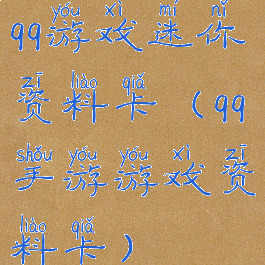 yóu xì mí nǐ
99游戏迷你
zī liào qiǎ
资料卡（99
shǒu yóu yóu xì zī
手游游戏资
liào qiǎ
料卡）